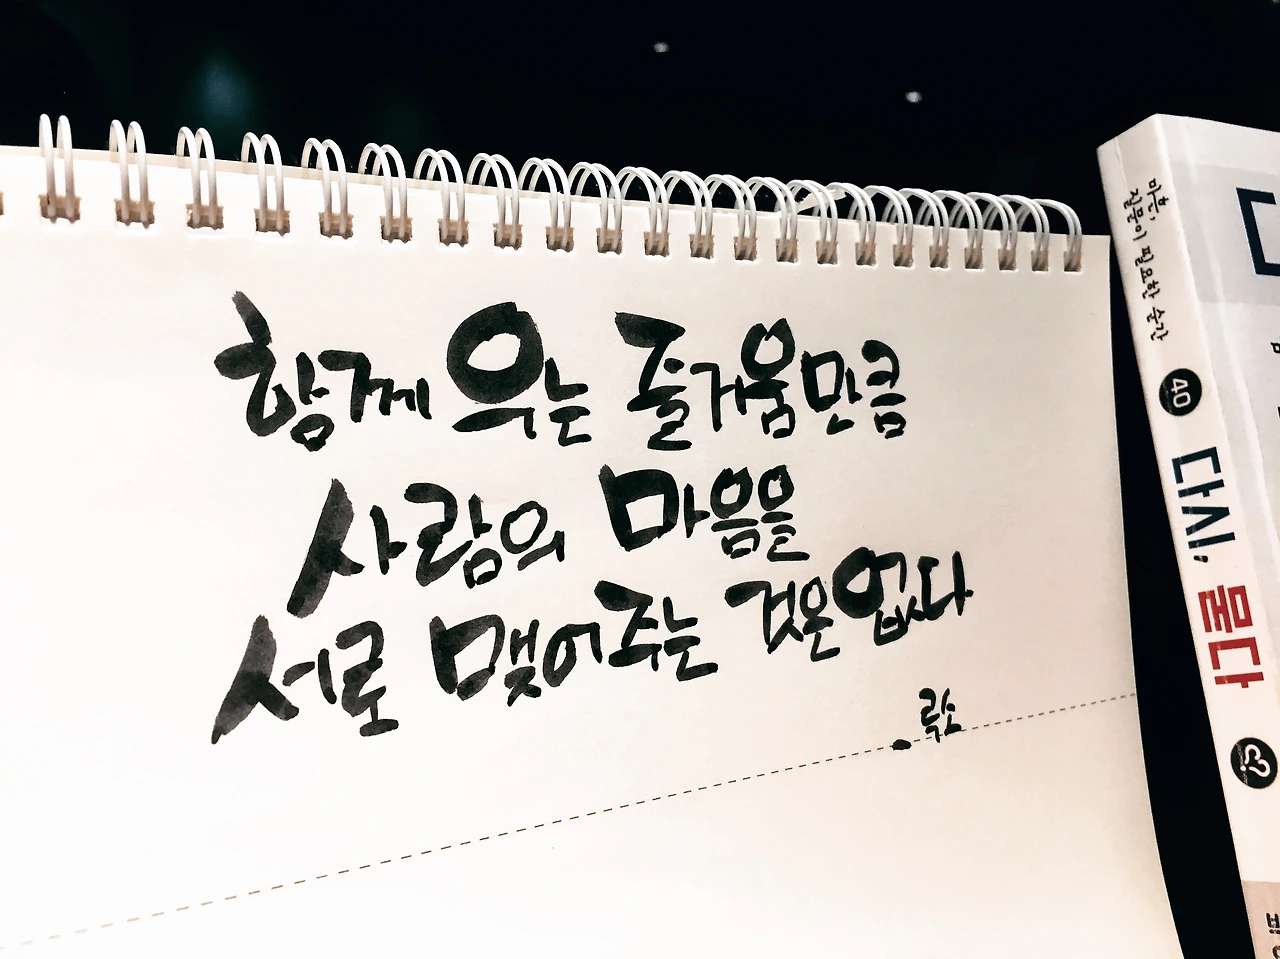 함께 우는 즐거움만큼
사람의 마음을
서로 맺어주는 것은 없다
. 루소
마흔,
질문이 필요한 순간
40
다시, 묻다